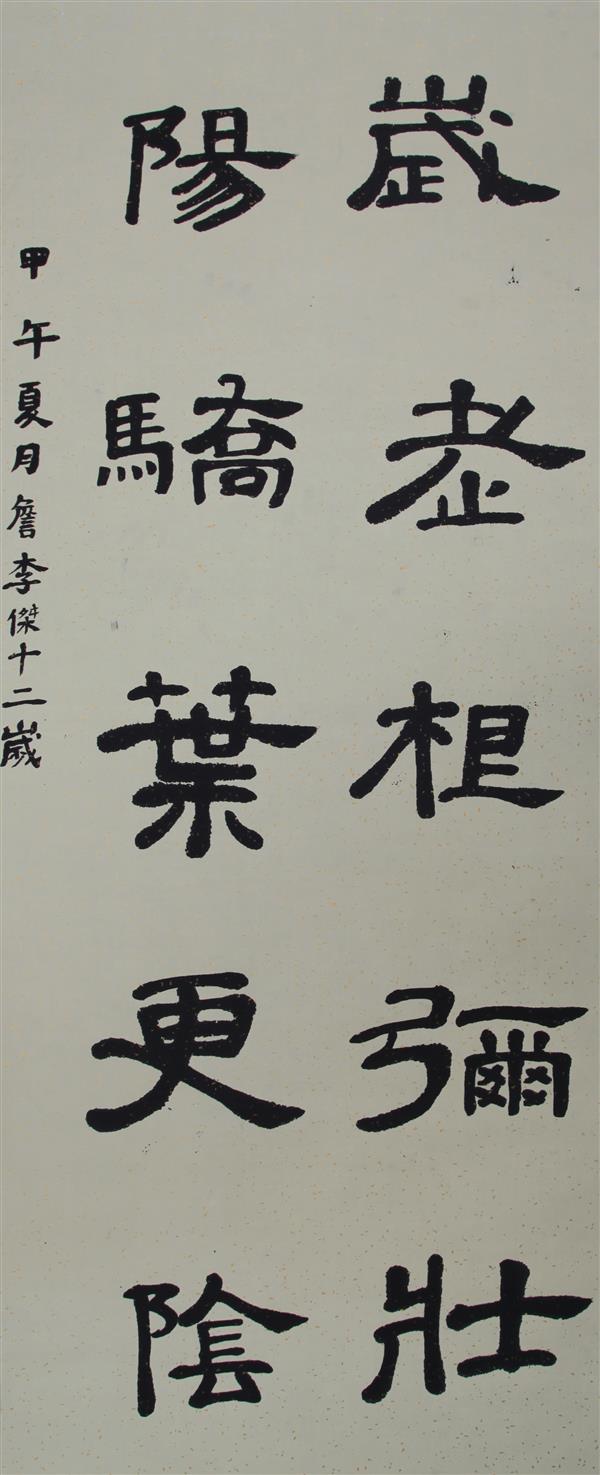 歲老根彌壯
陽驕葉更陰
甲午夏月詹李傑十二歲